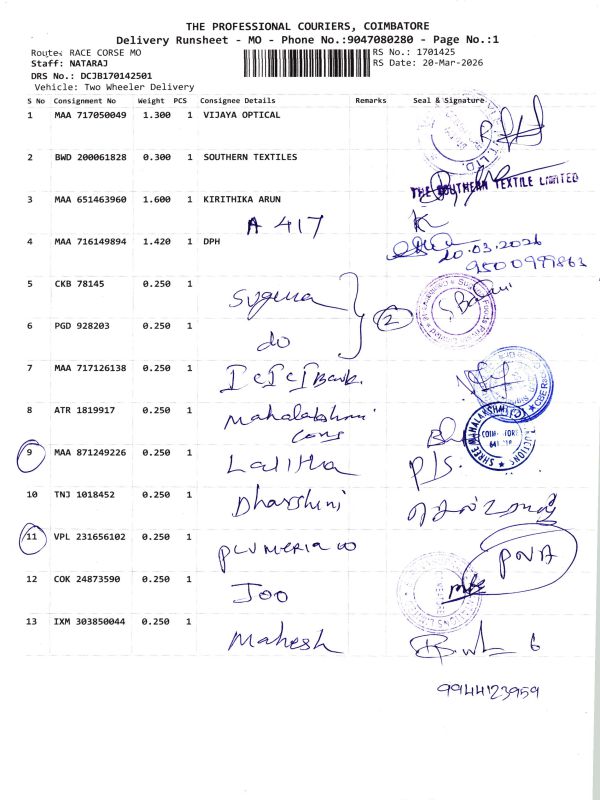 THE PROFESSIONAL COURIERS, COIMBATORE
Delivery Runsheet - MO - Phone No.:9047080280 - Page No.:1
Route: RACE CORSE MO RS No.: 1701425
Staff: NATARAJ RS Date: 20-Mar-2026
DRS No.: DCJB170142501
Vehicle: Two Wheeler Delivery
S No Consignment No Weight PCS Consignee Details Remarks Seal & Signature
1 MAA 717050049 1.300 1 VIJAYA OPTICAL
2 BWD 200061828 0.300 1 SOUTHERN TEXTILES
THE SOUTHERN TEXTILE LIMITED
3 MAA 651463960 1.600 1 KIRITHIKA ARUN
A 417
K
4 MAA 716149894 1.420 1 DPH
20.03.2026
9500999863
5 CKB 78145 0.250 1 Sygena
2
6 PGD 928203 0.250 1 do
7 MAA 717126138 0.250 1 ICICI Bank
8 ATR 1819917 0.250 1 Mahalakshmi
Cons
SHREE MAHALAKSHMI
9 MAA 871249226 0.250 1 Lalitha
10 TNJ 1018452 0.250 1 Dharshini
11 VPL 231656102 0.250 1 PLUMERIA
PNA
12 COK 24873590 0.250 1 Joo
13 IXM 303850044 0.250 1 Mahesh
9944123959